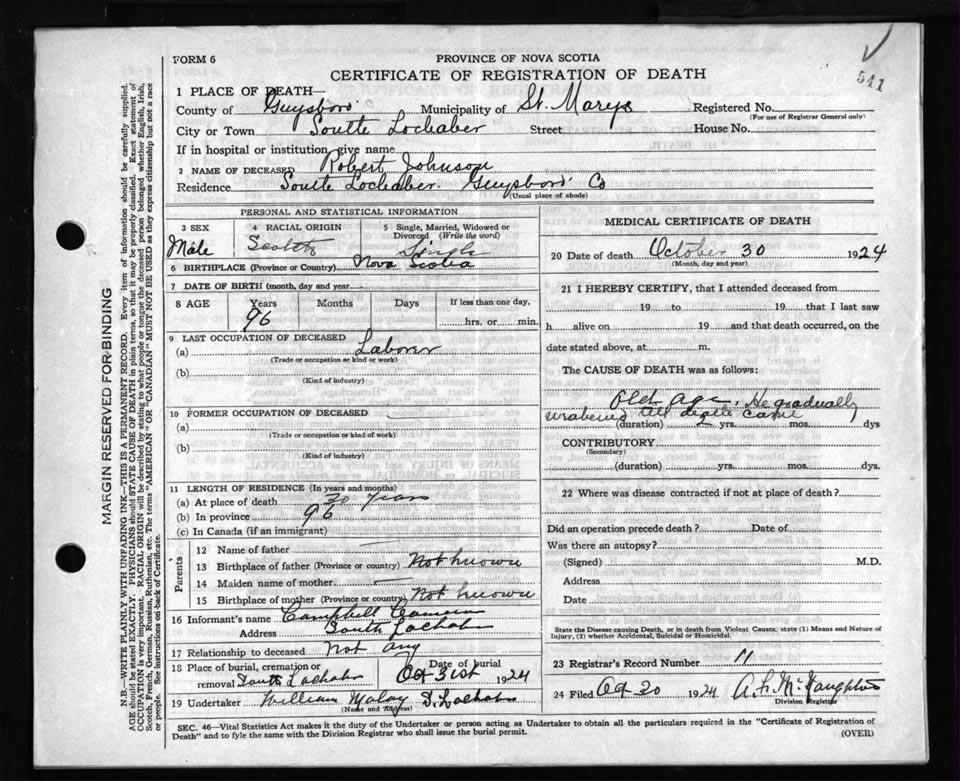 FORM 6
PROVINCE OF NOVA SCOTIA
CERTIFICATE OF REGISTRATION OF DEATH
541
1 PLACE OF DEATH—
County of Guysboro Municipality of St. Marys Registered No.
(For use of Registrar General only)
City or Town South Lochaber Street House No.
If in hospital or institution, give name
2 NAME OF DECEASED Robert Johnson
Residence South Lochaber. Guysboro Co
(Usual place of abode)
PERSONAL AND STATISTICAL INFORMATION
3 SEX 4 RACIAL ORIGIN 5 Single, Married, Widowed or Divorced (Write the word)
Male Scotch Single
6 BIRTHPLACE (Province or Country) Nova Scotia
7 DATE OF BIRTH (month, day and year)
8 AGE Years Months Days If less than one day,
96 hrs. or min.
9 LAST OCCUPATION OF DECEASED
(a) Laborer
(Trade or occupation or kind of work)
(b)
(Kind of industry)
10 FORMER OCCUPATION OF DECEASED
(a)
(Trade or occupation or kind of work)
(b)
(Kind of industry)
11 LENGTH OF RESIDENCE (In years and months)
(a) At place of death 30 years
(b) In province 96
(c) In Canada (if an immigrant)
Parents
12 Name of father
13 Birthplace of father (Province or country) Not known
14 Maiden name of mother
15 Birthplace of mother (Province or country) Not known
16 Informant's name Campbell Cameron
Address South Lochaber
17 Relationship to deceased Not any
18 Place of burial, cremation or removal South Lochaber Date of burial Oct 31st 1924
19 Undertaker William Maloy S. Lochaber
(Name and Address)
MEDICAL CERTIFICATE OF DEATH
20 Date of death October 30 1924
(Month, day and year)
21 I HEREBY CERTIFY, that I attended deceased from
19 to 19 that I last saw
h alive on 19 and that death occurred, on the
date stated above, at m.
The CAUSE OF DEATH was as follows:
Old Age. He gradually
weakened till death came
(duration) 2 yrs. mos. dys
CONTRIBUTORY
(Secondary)
(duration) yrs. mos. dys.
22 Where was disease contracted if not at place of death?
Did an operation precede death? Date of
Was there an autopsy?
(Signed) M.D.
Address
Date
State the Disease causing Death, or in death from Violent Causes, state (1) Means and Nature of
Injury, (2) whether Accidental, Suicidal or Homicidal.
23 Registrar's Record Number 11
24 Filed Oct 30 1924 A. L. McNaughton
Division Registrar
SEC. 46—Vital Statistics Act makes it the duty of the Undertaker or person acting as Undertaker to obtain all the particulars required in the "Certificate of Registration of
Death" and to fyle the same with the Division Registrar who shall issue the burial permit. (OVER)
MARGIN RESERVED FOR BINDING
N.B.—WRITE PLAINLY WITH UNFADING INK—THIS IS A PERMANENT RECORD. Every item of information should be carefully supplied.
AGE should be stated EXACTLY. PHYSICIANS should STATE CAUSE OF DEATH in plain terms, so that it may be properly classified. Exact statement of
OCCUPATION is very important. RACIAL ORIGIN will be described by stating to what people or tongue the deceased person belonged whether English, Irish,
Scotch, French, German, Russian, Ruthenian, etc. The terms "AMERICAN" OR "CANADIAN" MUST NOT BE USED as they express citizenship but not a race
or people. See instructions on back of Certificate.